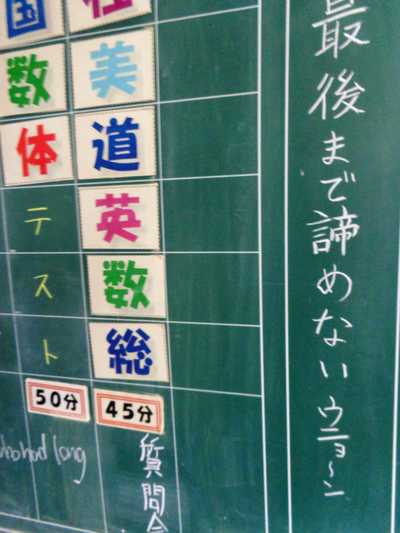 最後まで諦めないウニョ〜ン
社
美
道
英
数
総
45分
質問会
国
数
体
テスト
50分
long